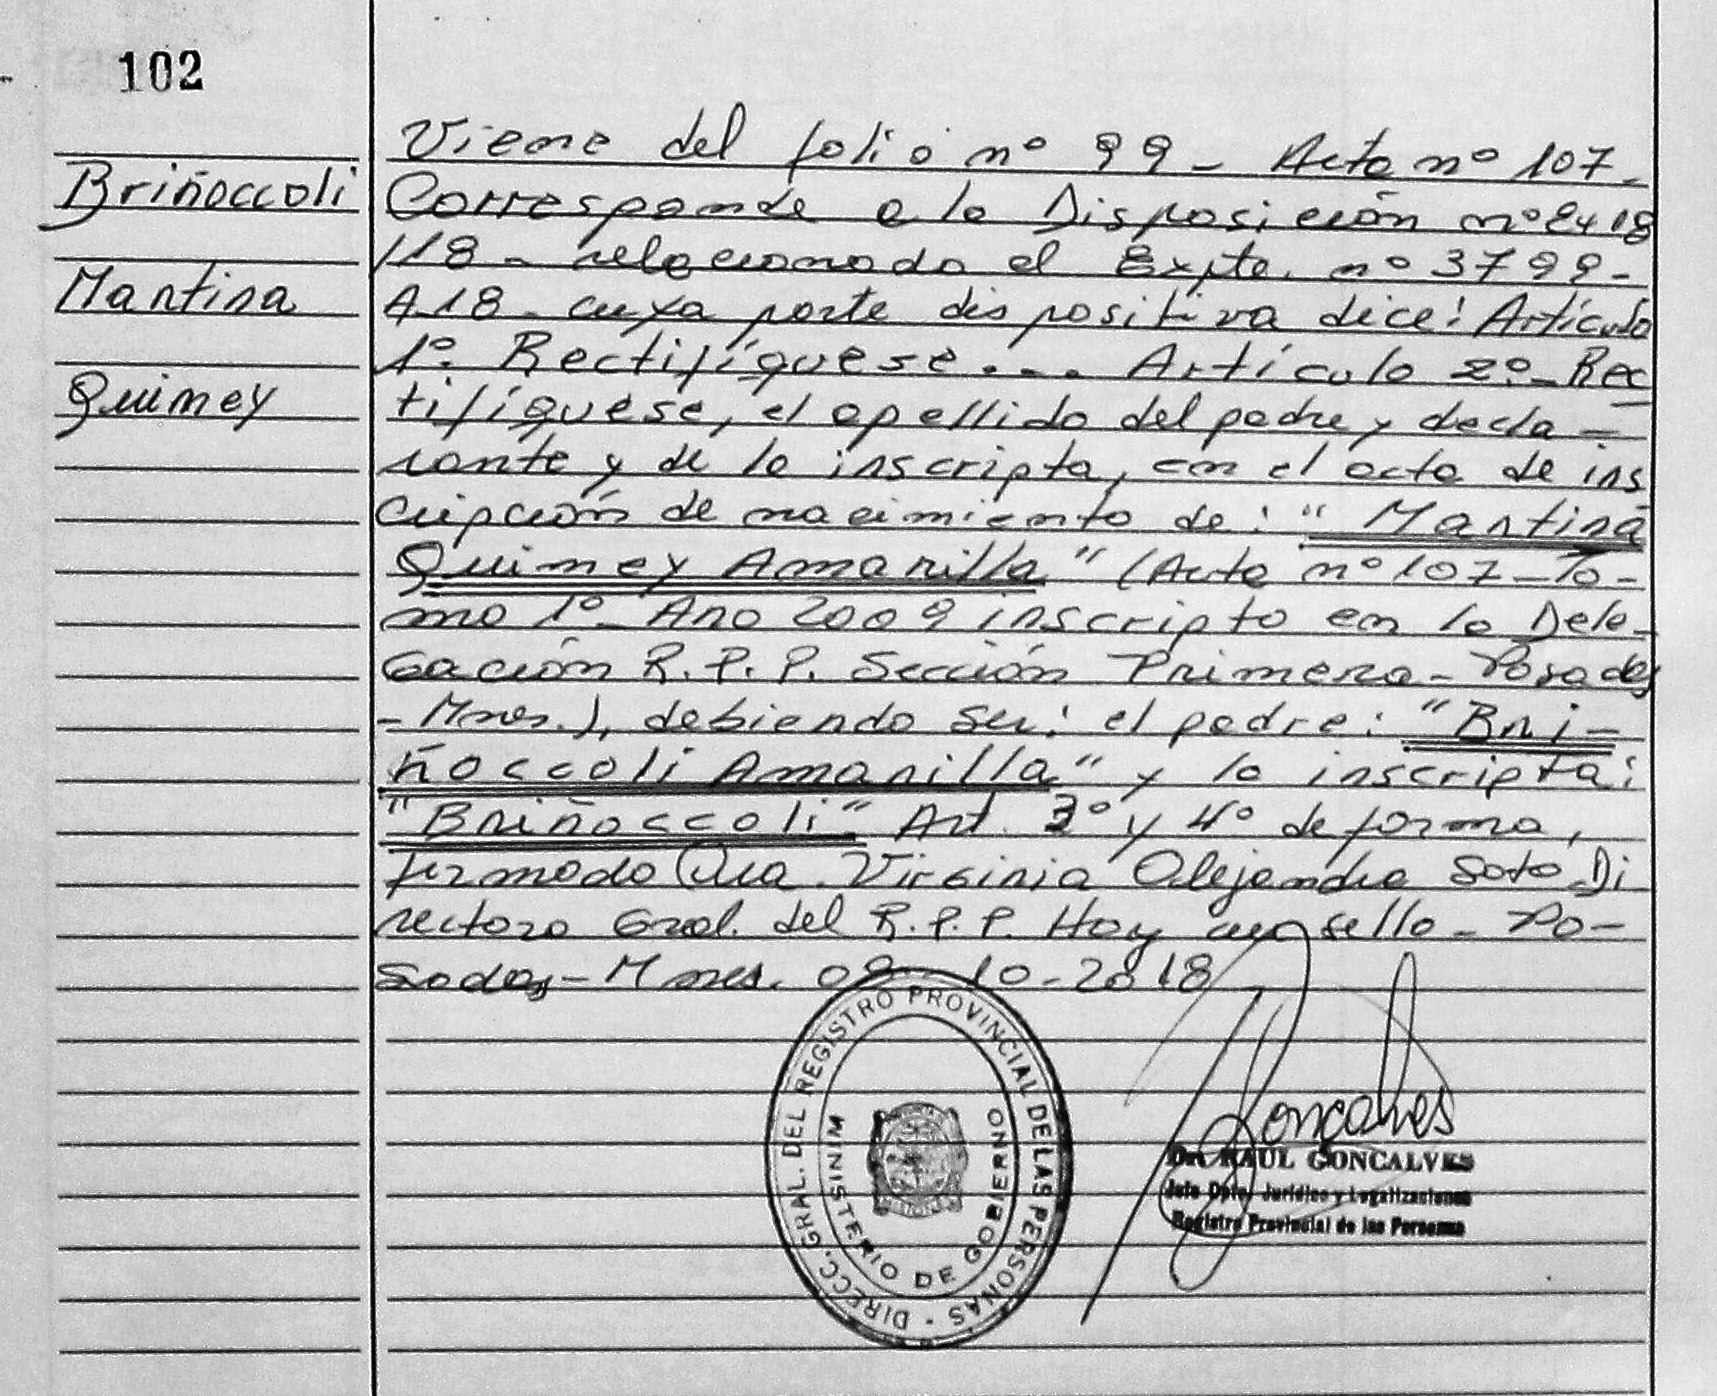 102
Briñoccoli
Martina
Quimey
Viene del folio nº 99 - Acta nº 107 -
Corresponde a la Disposición nº 2418
/18 - relacionado el Expte. nº 3799 -
A-18 - cuya parte dispositiva dice: Artículo
1º. Rectifíquese... Artículo 2º - Rec
tifíquese, el apellido del padre y decla -
rante y de la inscripta, en el acta de ins
cripción de nacimiento de: "Martina
Quimey Amarilla" (Acta nº 107 - To -
mo 1º - Año 2009 inscripto en la Dele -
gación R. P. P. Sección Primera - Posadas
- Mnes.), debiendo ser: el padre: "Bri -
ñoccoli Amarilla" y la inscripta:
"Briñoccoli" Art. 3º y 4º de forma,
firmado Dra. Virginia Alejandra Soto - Di
rectora Gral. del R. P. P. Hay un sello - Po -
sadas - Mnes. 09 - 10 - 2018
DIRECC. GRAL. DEL REGISTRO PROVINCIAL DE LAS PERSONAS -
MINISTERIO DE GOBIERNO
Goncalves
Dr. RAUL GONCALVES
Jefe Dpto. Jurídico y Legalizaciones
Registro Provincial de las Personas